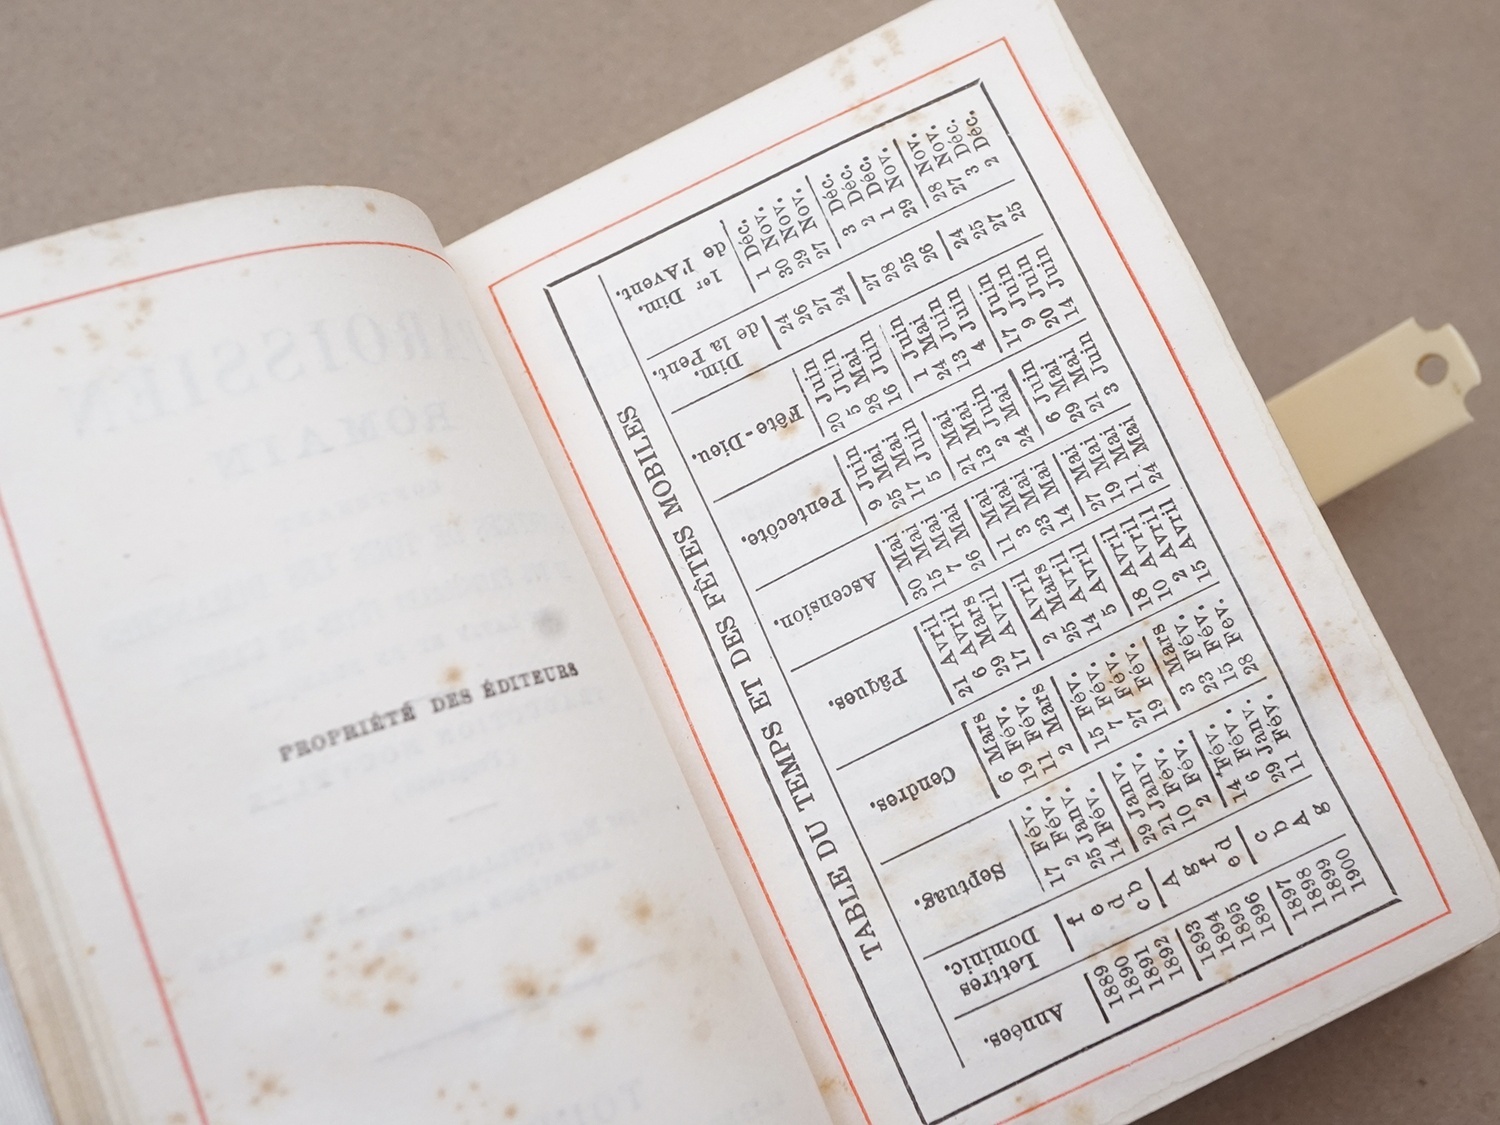 PROPRIÉTÉ DES ÉDITEURS
TABLE DU TEMPS ET DES FÊTES MOBILES
Années. Lettres Dominic. Septuag. Cendres. Pâques. Ascension. Pentecôte. Fête-Dieu. Dim. de la Pent. 1er Dim. de l'Avent.
1889 f 17 Fév. 6 Mars 21 Avril 30 Mai 9 Juin 20 Juin 24 1 Déc.
1890 e 2 Fév. 19 Fév. 6 Avril 15 Mai 25 Mai 5 Juin 26 30 Nov.
1891 d 25 Janv. 11 Fév. 29 Mars 7 Mai 17 Mai 28 Mai 27 29 Nov.
1892 cb 14 Fév. 2 Mars 17 Avril 26 Mai 5 Juin 16 Juin 24 27 Nov.
1893 A 29 Janv. 15 Fév. 2 Avril 11 Mai 21 Mai 1 Juin 27 3 Déc.
1894 g 21 Janv. 7 Fév. 25 Mars 3 Mai 13 Mai 24 Mai 28 2 Déc.
1895 f 10 Fév. 27 Fév. 14 Avril 23 Mai 2 Juin 13 Juin 25 1 Déc.
1896 ed 2 Fév. 19 Fév. 5 Avril 14 Mai 24 Mai 4 Juin 26 29 Nov.
1897 c 14 Fév. 3 Mars 18 Avril 27 Mai 6 Juin 17 Juin 24 28 Nov.
1898 b 6 Fév. 23 Fév. 10 Avril 19 Mai 29 Mai 9 Juin 25 27 Nov.
1899 A 29 Janv. 15 Fév. 2 Avril 11 Mai 21 Mai 20 Juin 27 3 Déc.
1900 g 11 Fév. 28 Fév. 15 Avril 24 Mai 3 Juin 14 Juin 25 2 Déc.